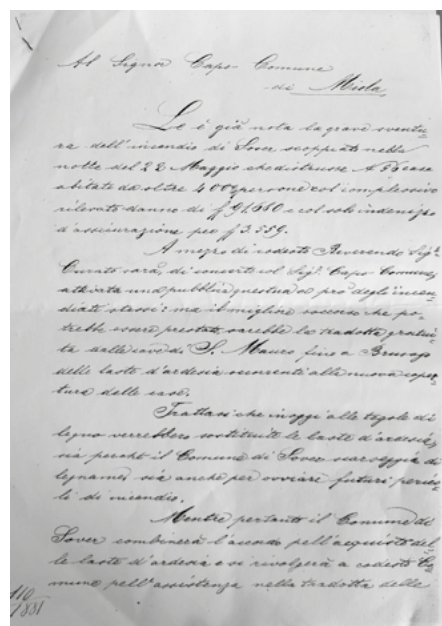 Al Signor Capo-Comune
di Miola
Le è già nota la grave sventu-
ra dell'incendio di Sover scoppiato nella
notte del 22 Maggio che distrusse N. 56 case
abitate da oltre 400 persone col complessivo
rilevato danno di f 91.660 e col solo indenizzo
d'assicurazione per f 3.559.
A mezzo di codesto Reverendo Sig.r
Curato sarà, di concerto col Sig.r Capo Comune,
attivata una pubblica questua a pro degli incen-
diati stessi: ma il miglior soccorso che po-
trebbe essere prestato sarebbe la tradotta gratui-
ta dalle cave di S. Mauro fino a Brusago
delle laste d'ardesia occorrenti alla nuova coper-
tura delle case.
Trattasi che in oggi alle tegole di
legno verrebbero sostituite le laste d'ardesia,
sia perché il Comune di Sover scarseggia di
legname, sia anche per ovviare futuri perico-
li di incendio.
Mentre pertanto il Comune di
Sover combinerà l'accordo pell'acquisto del-
le laste d'ardesia e si rivolgerà a codesto Co-
mune pell'assistenza nella tradotta delle
110
1881